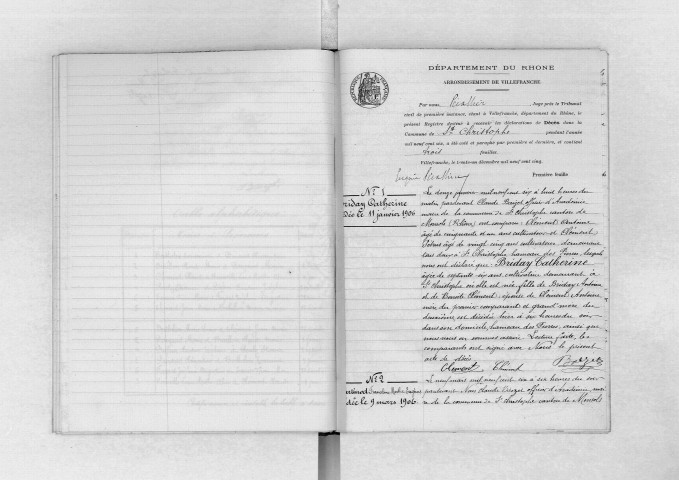 DÉPARTEMENT DU RHONE
ARRONDISSEMENT DE VILLEFRANCHE
Par nous, Juge près le Tribunal
civil de première instance, séant à Villefranche, département du Rhône, le
présent Registre destiné à recevoir les déclarations de Décès dans la
Commune de St Christophe pendant l'année
mil neuf cent six, a été coté et paraphé par première et dernière, et contient
trois feuilles.
Villefranche, le trente-un décembre mil neuf cent cinq.
Première feuille
No 1
Briday Catherine
Dée le 11 janvier 1906
Le douze janvier mil neuf cent six à huit heures du
matin pardevant Claude officier d'Académie
maire de la commune de St Christophe canton de
Monsols (Rhône) ont comparu: Clément Antoine
âgé de cinquante et un ans cultivateur et Clément
âgé de vingt cinq ans cultivateur demeurant
tous deux à St Christophe hameau des lesquels
nous ont déclaré que Briday Catherine
âgée de septante six ans cultivateur demeurant à
St Christophe où elle est née, fille de Briday Antoine
et de Clément; épouse de Clément Antoine
mère du premier comparant et grand mère du
deuxième, est décédée hier à six heures du soir
dans son domicile, hameau des ainsi que
nous nous en sommes assuré. Lecture faite, les
comparants ont signé avec Nous le présent
acte de décès.
Clément Clément
No 2
dée le 9 mars 1906
Le neuf mars mil neuf cent six à six heures du soir
pardevant Nous Claude officier d'Académie, mai
re de la commune de St Christophe canton de Monsols